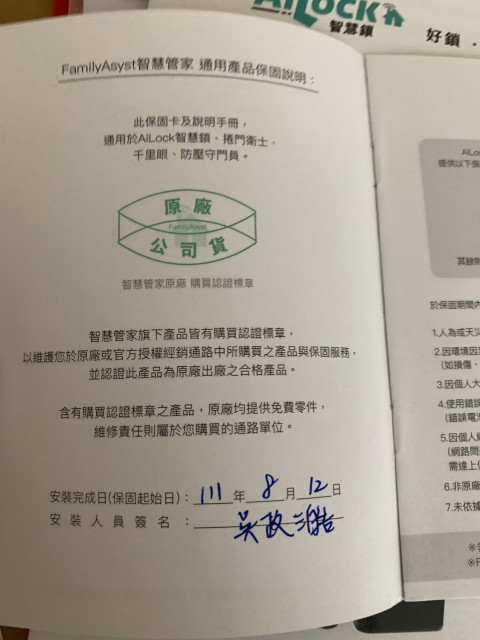 AiLock
智慧鎖
好鎖.
FamilyAsyst智慧管家 通用產品保固說明：
此保固卡及說明手冊，
通用於AiLock智慧鎖、捲門衛士、
千里眼、防壓守門員。
原廠
FamilyAsyst
公司貨
智慧管家原廠 購買認證標章
智慧管家旗下產品皆有購買認證標章，
以維護您於原廠或官方授權經銷通路中所購買之產品與保固服務，
並認證此產品為原廠出廠之合格產品。
含有購買認證標章之產品，原廠均提供免費零件，
維修責任則屬於您購買的通路單位。
安裝完成日(保固起始日)：111年8月12日
安裝人員簽名：吳政
提供以下保
其餘
於保固期間內
1.人為或天災
2.因環境因
(如損傷、
3.因個人
4.使用錯誤
(錯誤電
5.因個人
(網路問
需連上
6.非原廠
7.未依據